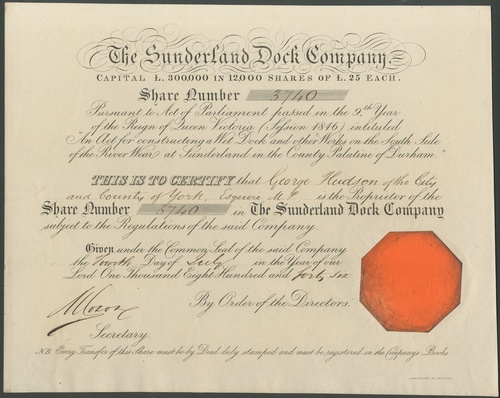 The Sunderland Dock Company
CAPITAL Ł. 300,000 IN 12,000 SHARES OF Ł. 25 EACH.
Share Number 3740
Pursuant to Act of Parliament passed in the 9.th Year
of the Reign of Queen Victoria (Session 1846) intituled
"An Act for constructing a Wet Dock and other Works on the South Side
of the River Wear at Sunderland in the County Palatine of Durham."
THIS IS TO CERTIFY that George Hudson of the City
and County of York, Esquire M.P. is the Proprietor of the
Share Number 3740 in The Sunderland Dock Company
subject to the Regulations of the said Company.
Given under the Common Seal of the said Company
the Fourth Day of July in the Year of our
Lord One Thousand Eight Hundred and forty six
By Order of the Directors.
Secretary.
N.B. Every Transfer of this Share must be by Deed duly stamped and must be registered in the Company's Books